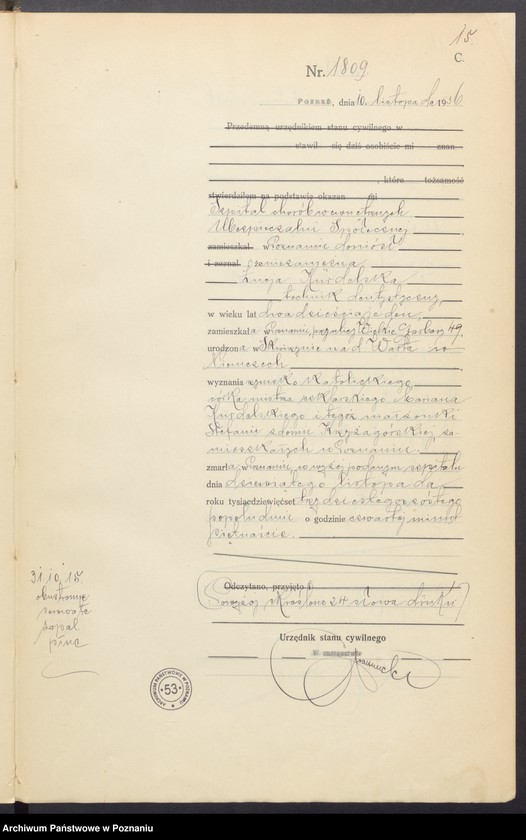 15.
C.
Nr. 1809
POZNAŃ, dnia 10. listopada 1936
Przedemną urzędnikiem stanu cywilnego w
stawił się dziś osobiście mi znan
, które tożsamość
stwierdziłem na podstawie okazan mi
Szpital chorób wewnętrznych
Ubezpieczalni Społecznej
zamieszkał w Poznaniu doniósł
i zeznał, że niezamężna
Łucja
technik dentystyczny,
w wieku lat dwadzieścia jeden,
zamieszkała w Poznaniu, przy ulicy Wielkie Garbary 49.
urodzona w Skwierzynie nad Wartą w
Niemczech
wyznania rzymsko katolickiego
córka mistrza Mariana
i tegoż małżonki
Stefanii z domu za-
mieszkałych w Poznaniu.
zmarła w Poznaniu, w wyżej podanym szpitalu
dnia dziewiątego listopada
roku tysiącdziewięćset trzydziestego szóstego
popołudniu o godzinie czwartej minut
piętnaście.
Odczytano, przyjęto i
Powyżej skreślono 24 słowa druku
Urzędnik stanu cywilnego
W zastępstwie
31.10.15.
zapal
płuc
ARCHIWUM PAŃSTWOWE W POZNANIU
53
Archiwum Państwowe w Poznaniu